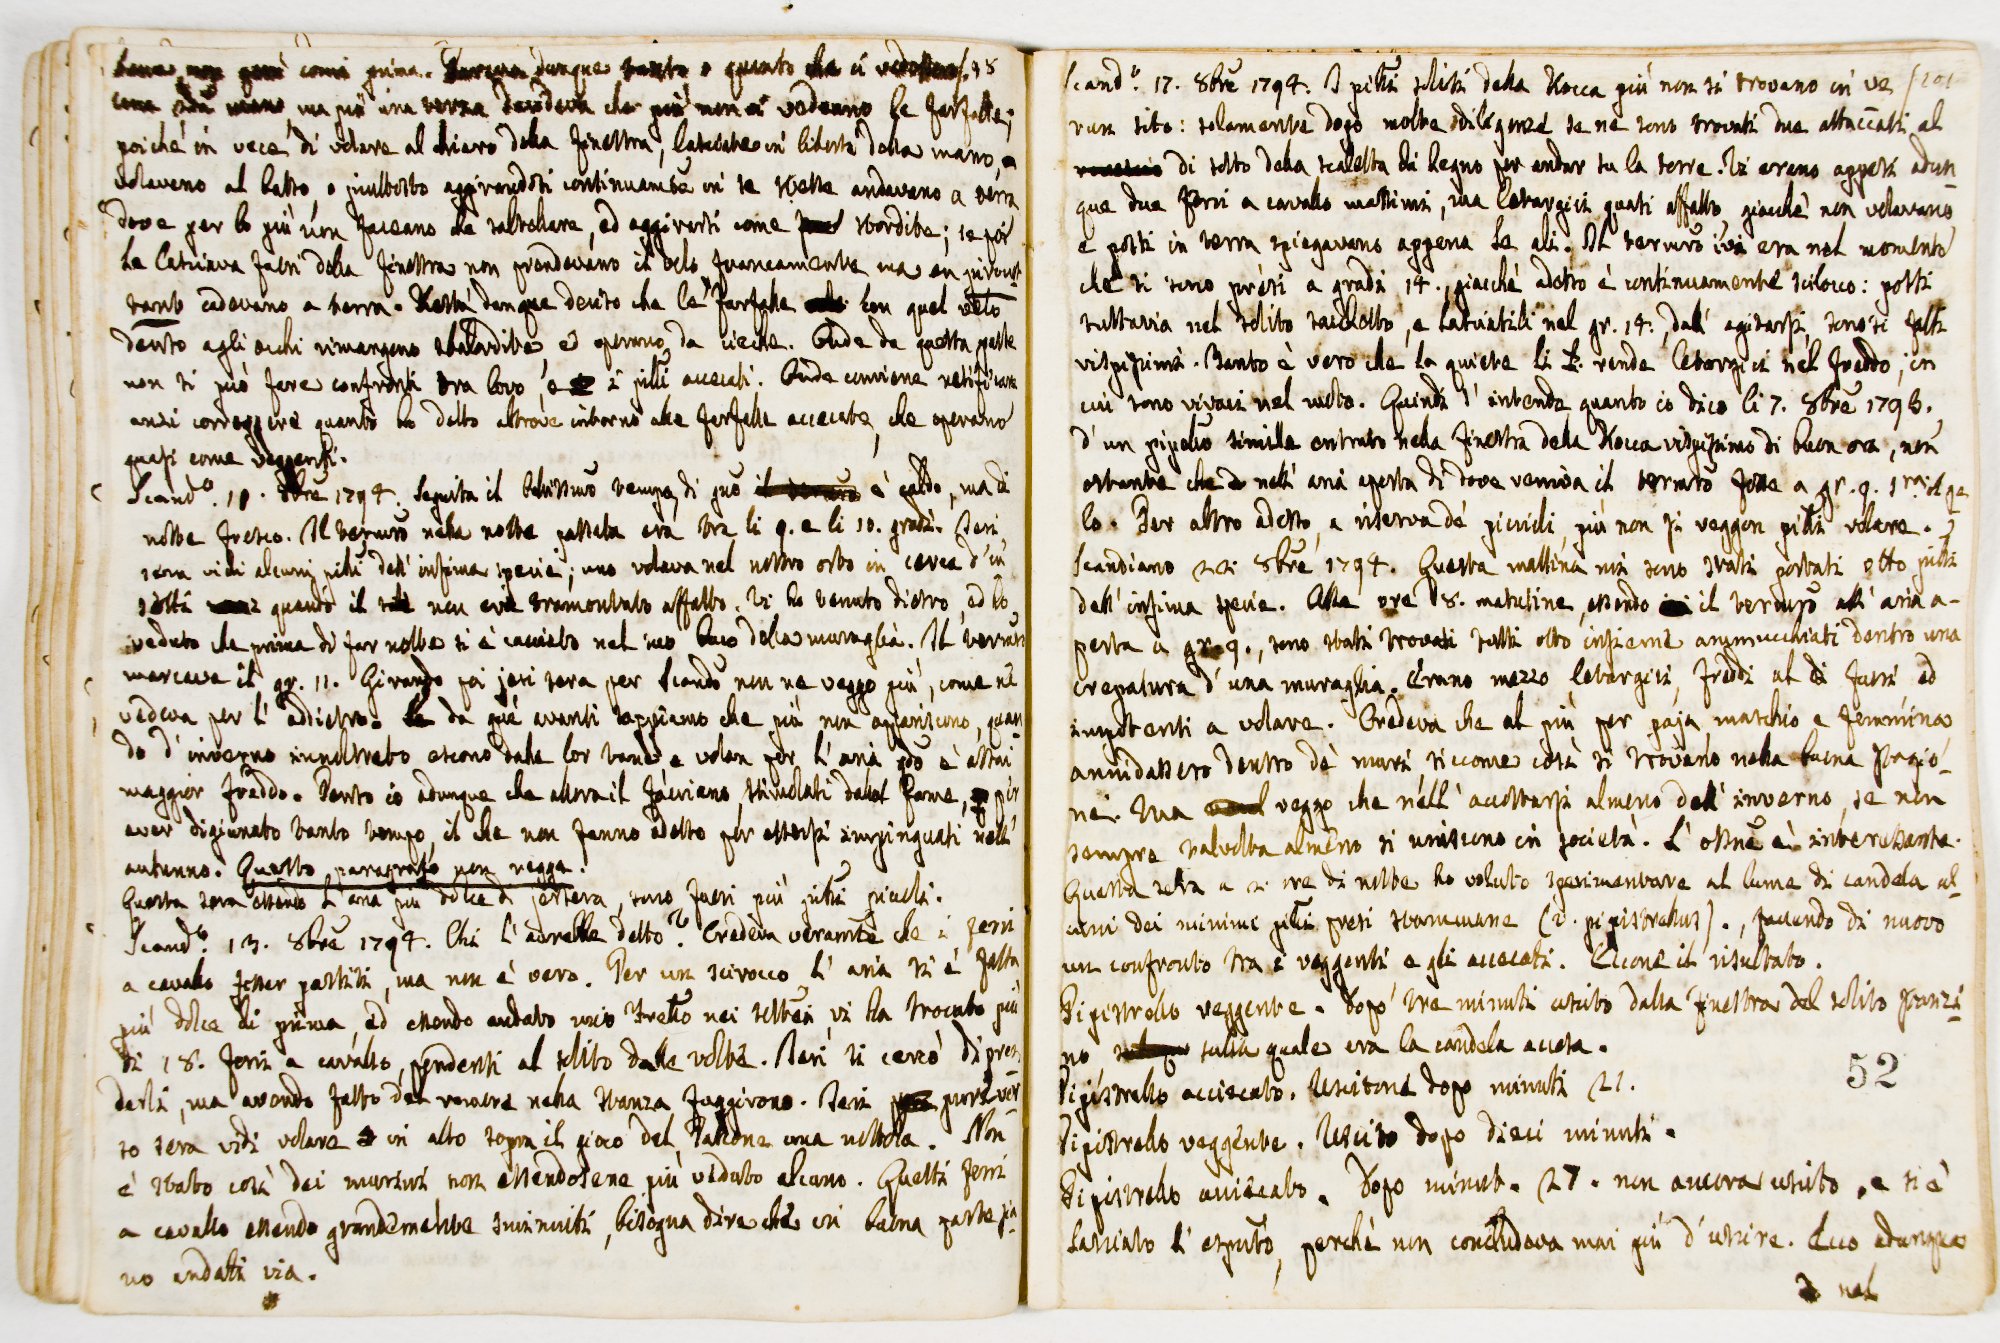 come prima. dunque o quanto che ci
ma più una terza che più non ci vedeano le farfalle;
poiché in vece di volare al chiaro della finestra, lasciate in libertà dalla mano,
volaveno al basso, o piuttosto aggirandosi continuamte in se stesse andaveno a terra
dove per lo più non faceano che saltellare, ed aggirarsi come stordite; se poi
le lasciava fuori della finestra non prendevano il volo francamente ma
cadevano a terra. Resta dunque deciso che le farfalle con quel velo
agli occhi rimangono sbalordite, ed operano da cieche. Onde da questa parte
non si può fare confronti tra loro, e i pilli accecati. Onde conviene
anzi correggere quanto ho detto altrove intorno alle farfalle accecate, che operano
quasi come veggenti.
Scando. 10. 8bre 1794. Seguita il bellissimo tempo, di è caldo, ma di
notte fresco. Il termro nella notte passata era tra li 9. e li 10. gradi. Jeri
sera vidi alcuni pilli dell' infima specie; uno volava nel nostro orto in cerca d'in
setti quando il sole non era tramontato affatto. Vi ho tenuto dietro, ed ho
veduto che prima di far notte si è cacciato nel suo buco della muraglia. Il termro
marcava il gr. 11. Girando poi jeri sera per Scando non ne veggo più, come ne
vedeva per l' addietro. da qui avanti sappiamo che più non appariscono, quan
do d' inverno inoltrato escono dalle lor tane e volan per l' aria qdo è assai
maggior freddo. Penso io adunque che allora il facciano, stimolati dalla fame, per
aver digiunato tanto tempo, il che non fanno adesso per essersi impinguati nell'
autunno. Questo paragrafo non regge.
Questa sera essendo l' aria più dolce di jersera, sono fuori più pilli piccoli.
Scando. 13. 8bre 1794. Chi l' avrebbe detto? Credeva veramte che i ferri
a cavallo fosser partiti, ma non è vero. Per un scirocco l' aria si è fatta
più dolce di prima, ed essendo andato mio Frello nei vi ha trovato più
di 18. ferri a cavallo, pendenti al solito dalle volte. Jeri si cercò di pren
derli, ma avendo fatto del romore nella stanza fuggirono. Jeri pure ver
so sera vidi volare in alto sopra il gioco del Pallone una nottola. Non
è stato così dei murini non essendosene più veduto alcuno. Questi ferri
a cavallo essendo grandemente sminuiti, bisogna dire che in buona parte sia
no andati via.
Scando. 17. 8bre 1794. I pilli soliti della Rocca più non si trovano in ve
run sito: solamente dopo molte diligenze se ne sono trovati due attaccati al
di sotto della scaletta di legno per andar su la torre. Vi erano appesi adun
que due ferri a cavallo massimi, ma letargici quasi affatto, giacchè non volavano
e posti in terra spiegavano appena le ali. Il termro ivi era nel momento
che si sono presi a gradi 14., giacchè adesso è continuamente scilocco: posti
tuttavia nel solito sacchetto, e lasciatili nel gr. 14. dall' agitarsi, sonosi fatti
vispissimi. Tanto è vero che la quiete li rende letargici nel freddo, in
cui sono vivaci nel moto. Quindi s' intende quanto io dico li 7. 8bre 1793.
d' un pipello simile entrato nella finestra della Rocca vispissimo di buon ora, non
ostante che nell' aria aperta di dove veniva il termro fosse a gr. 9. sra il ge
lo. Per altro adesso, a riserva de' piccioli, più non si veggon pilli volare.
Scandiano 22. 8bre 1794. Questa mattina mi sono stati portati otto pilli
dell' infima specie. Alle ore 18. matutine, essendo il termro all' aria a-
perta a gr. 9., sono stati trovati tutti otto insieme ammucchiati dentro una
crepatura d' una muraglia. Erano mezzo letargici, freddi al di fuori ed
impotenti a volare. Credeva che al più per paja, maschio e femmina
annidassero dentro de' muri, siccome così si trovano nella buona stagio-
ne. Ma veggo che nell' accostarsi almeno dell' inverno, se non
sempre talvolta almeno si uniscono in società. L' ossne è interessante.
Questa sera a 2. ore di notte ho voluto sperimentare al lume di candela al-
cuni dei minimi pilli presi stammane (v. pipistrellus)., facendo di nuovo
un confronto tra i veggenti e gli accecati. Eccone il risultato.
Pipistrello veggente. Dopo tre minuti uscito dalla finestra del solito stanzi
no sulla quale era la candela accesa.
Pipistrello acciecato. Uscitone dopo minuti 21.
52
Pipistrello veggente. Uscito dopo dieci minuti.
Pipistrello acciecato. Dopo minut. 27. non ancora uscito, e si è
lasciato l' esprto, perchè non concludeva mai più d' uscire. Ecco adunque
nel